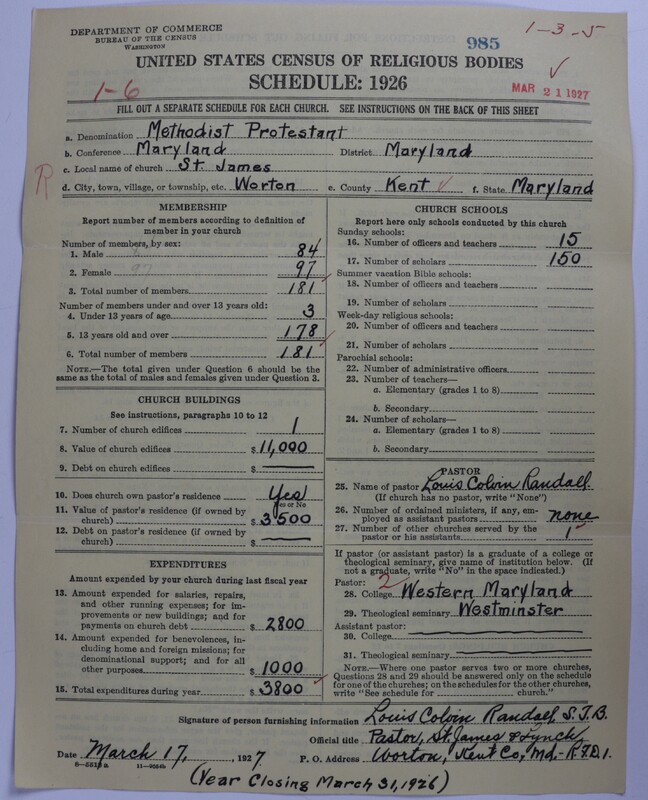 DEPARTMENT OF COMMERCE
BUREAU OF THE CENSUS
WASHINGTON
985
1-3-5
UNITED STATES CENSUS OF RELIGIOUS BODIES
SCHEDULE: 1926
1-6
MAR 21 1927
FILL OUT A SEPARATE SCHEDULE FOR EACH CHURCH. SEE INSTRUCTIONS ON THE BACK OF THIS SHEET
a. Denomination Methodist Protestant
b. Conference Maryland District Maryland
c. Local name of church St. James
R
d. City, town, village, or township, etc. Worton e. County Kent f. State Maryland
MEMBERSHIP
Report number of members according to definition of
member in your church
Number of members, by sex:
1. Male 84
2. Female 97 97
3. Total number of members 181
Number of members under and over 13 years old:
4. Under 13 years of age 3
5. 13 years old and over 178
6. Total number of members 181
NOTE.—The total given under Question 6 should be
same as the total of males and females given under Question 3.
CHURCH BUILDINGS
See instructions, paragraphs 10 to 12
7. Number of church edifices 1
8. Value of church edifices $ 11,000
9. Debt on church edifices $
10. Does church own pastor's residence Yes
Yes or No
11. Value of pastor's residence (if owned by
church) $ 3500
12. Debt on pastor's residence (if owned by
church) $
EXPENDITURES
Amount expended by your church during last fiscal year
13. Amount expended for salaries, repairs,
and other running expenses; for im-
provements or new buildings; and for
payments on church debt $ 2800
14. Amount expended for benevolences, in-
cluding home and foreign missions; for
denominational support; and for all
other purposes $ 1000
15. Total expenditures during year $ 3800
CHURCH SCHOOLS
Report here only schools conducted by this church
Sunday schools:
16. Number of officers and teachers 15
17. Number of scholars 150
Summer vacation Bible schools:
18. Number of officers and teachers
19. Number of scholars
Week-day religious schools:
20. Number of officers and teachers
21. Number of scholars
Parochial schools:
22. Number of administrative officers
23. Number of teachers—
a. Elementary (grades 1 to 8)
b. Secondary
24. Number of scholars—
a. Elementary (grades 1 to 8)
b. Secondary
PASTOR
25. Name of pastor Louis Colvin Randall
(If church has no pastor, write "None")
26. Number of ordained ministers, if any, em-
ployed as assistant pastors none
27. Number of other churches served by the
pastor or his assistants 1
If pastor (or assistant pastor) is a graduate of a college or
theological seminary, give name of institution below. (If
not a graduate, write "No" in the space indicated.)
Pastor: 2
28. College Western Maryland
29. Theological seminary Westminster
Assistant pastor:
30. College
31. Theological seminary
NOTE.—Where one pastor serves two or more churches,
Questions 28 and 29 should be answered only on the schedule
for one of the churches; on the schedules for the other churches,
write "See schedule for church."
Signature of person furnishing information Louis Colvin Randall, S.T.B.
Official title Pastor, St. James & Lynch
Date March 17, 1927. P. O. Address Worton, Kent Co, Md.- R.F.D.1.
(Year Closing March 31, 1926)